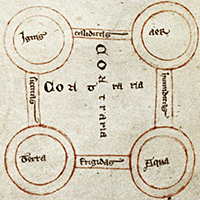 Ignis
calliditas
aer
Contraria
Contraria
siccitas
humiditas
Terra
frigiditas
Aqua